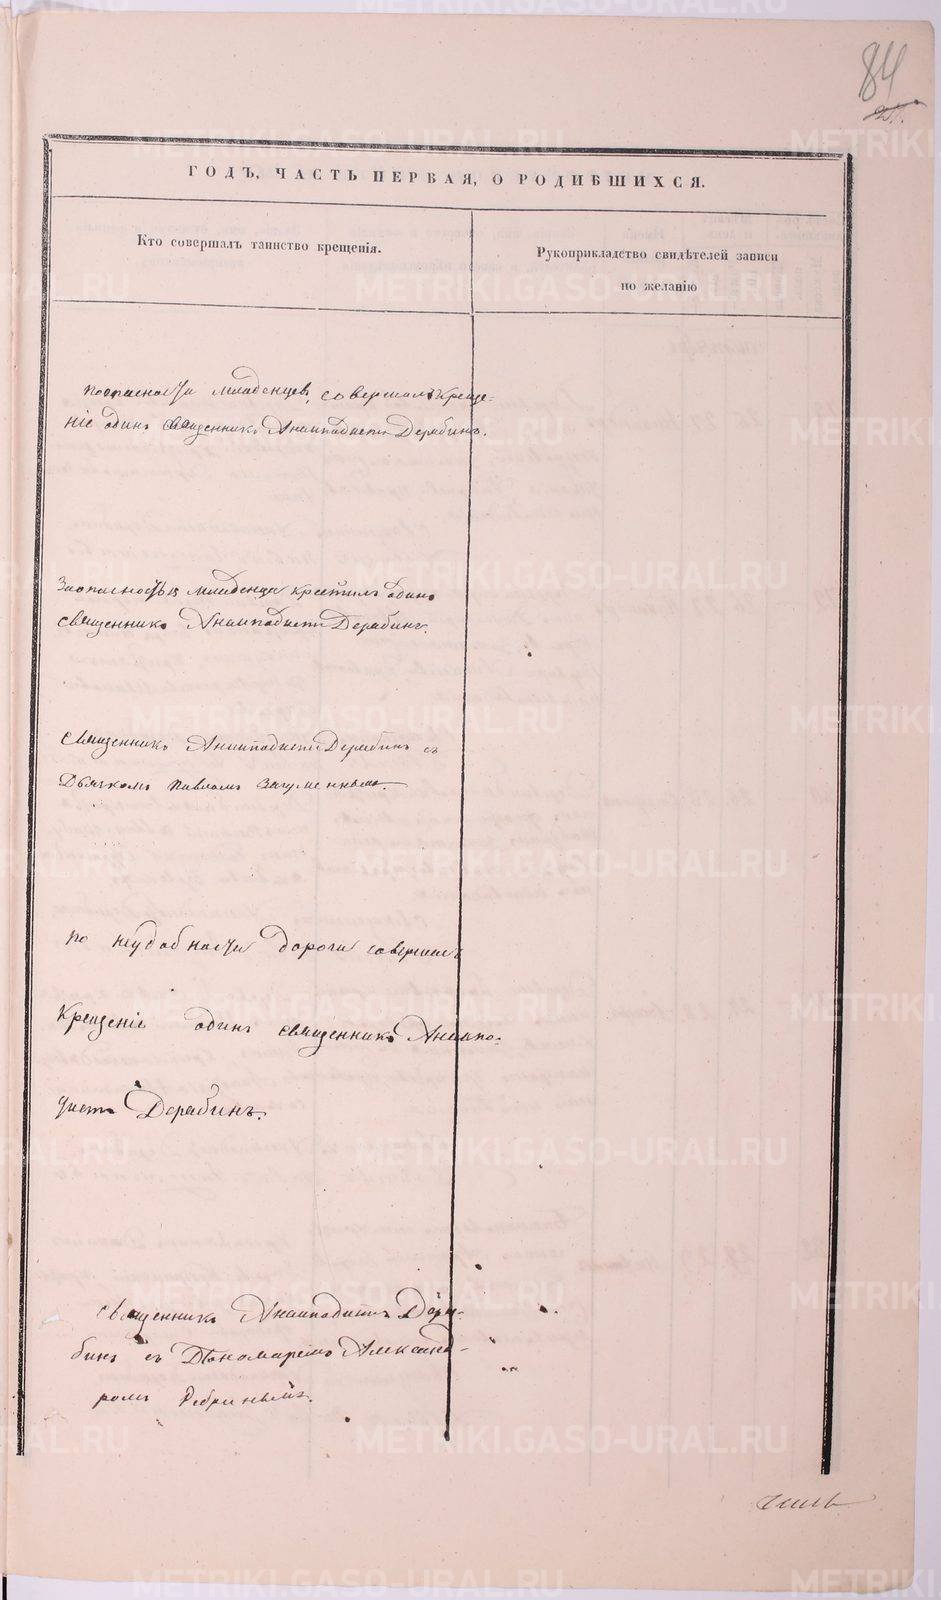 84
ГОДЪ, ЧАСТЬ ПЕРВАЯ, О РОДИВШИХСЯ.
Кто совершалъ таинство крещенія.
Рукоприкладство свидѣтелей записи
по желанію
поопасности младенцевъ, совершалъ Креще-
ніе одинъ священникъ Анемподистъ Дерябинъ.
Заопасностью младенца крестилъ одинъ
священникъ Анемподистъ Дерябинъ.
Священникъ Анемподистъ Дерябинъ съ
Дьячкомъ Павломъ Загуменнымъ.
по неудобности дороги совершалъ
Крещеніе одинъ священникъ Анемпо-
дистъ Дерябинъ.
священникъ Анемподистъ Деря-
бинъ съ Пономаремъ Александ-
ромъ Ребринымъ.
METRIKI.GASO-URAL.RU